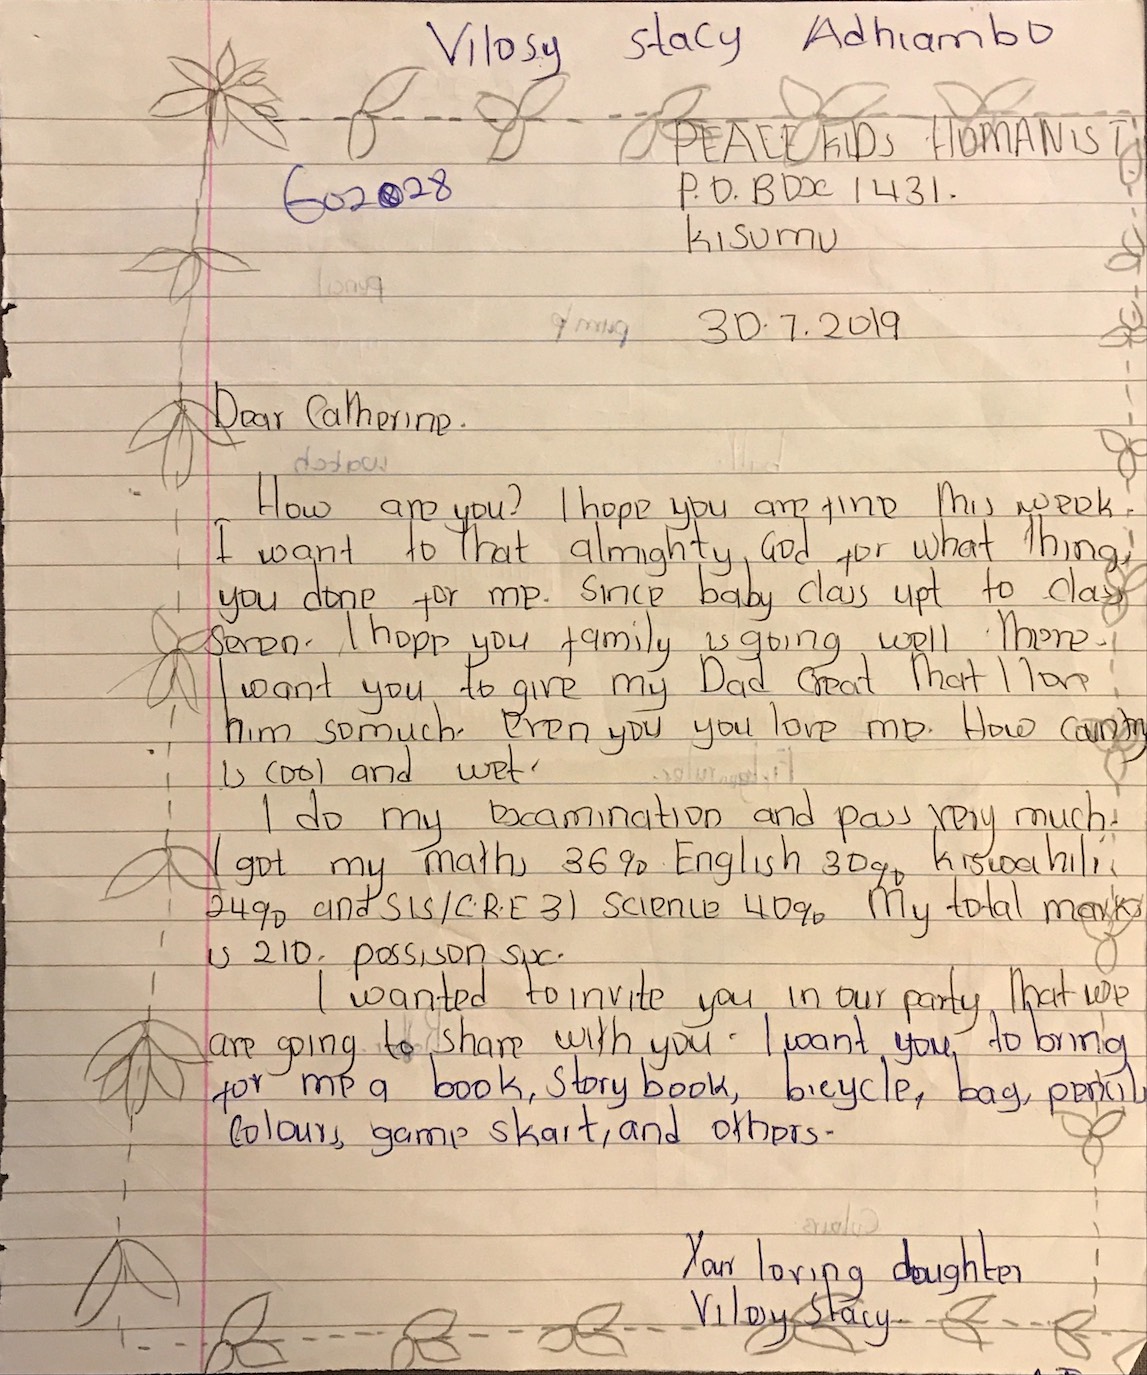 Vilosy Stacy Adhiambo
PEACE KIDS HUMANIST
602028
P.O. BOX 1431.
KISUMU
pencil
pump
30.7.2019
Dear Catherine.
watch
How are you? I hope you are fine this week.
I want to that almighty God for what thing
you done for me. Since baby class upt to class
seven. I hope you family is going well there.
I want you to give my Dad Great that I love
him somuch. Even you you love me. How
is cool and wet.
I do my examination and pass very much.
I got my maths 36% English 30% Kiswahili
24% and S.S/C.R.E 31 Science 40% My total marks
is 210. possison six.
I wanted to invite you in our party that we
are going to share with you. I want you to bring
for me a book, story book, bicycle, bag, pencil
Colours, game skart, and others.
Colours
Your loving doughter
Vilosy Stacy